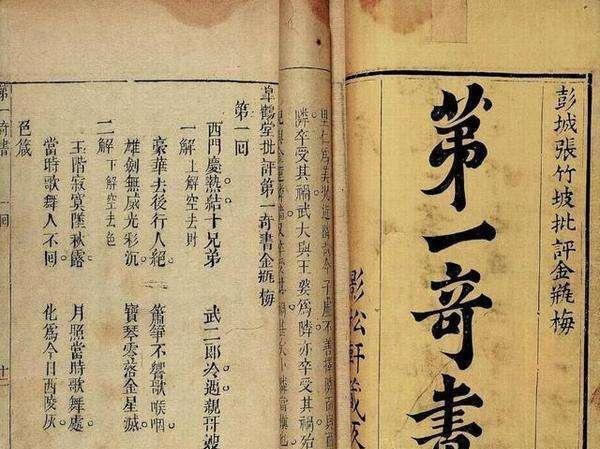 彭城張竹坡批評金瓶梅
苐一奇書
影松軒藏
鄰卒受其禍武大與王婆為鄰亦卒受其禍
皐鶴堂批評第一奇書金瓶梅
第一回
西門慶熱結十兄弟 武二郎冷遇親哥嫂
一解 上解空去財
豪華去後行人絕。 簫箏不響歌喉咽。
雄劍無威光彩沉。 寶琴零落金星滅。
二解 下解空去色
玉階寂寞墜秋露。 月照當時歌舞處。
當時歌舞人不回。 化為今日西陵灰。
色箴
第一奇書 一回 十